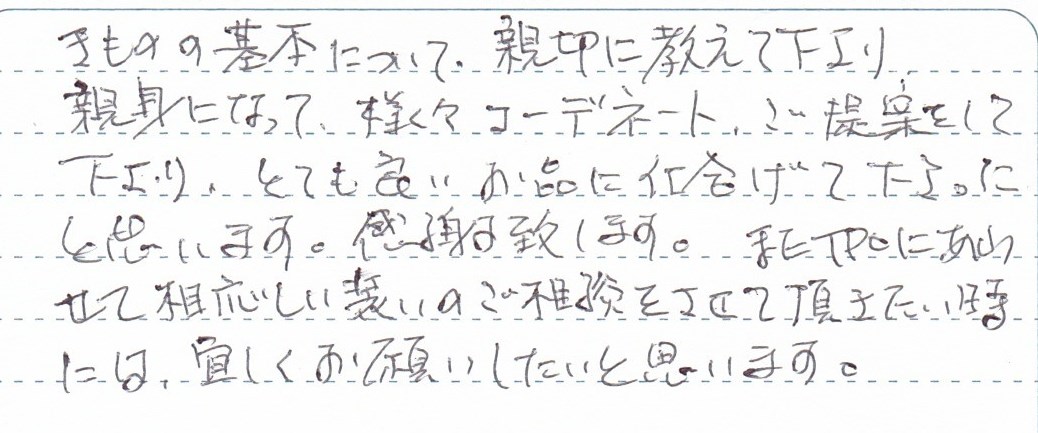 きものの基本について、親切に教えて下さり、
親身になって、様々コーデネート、ご提案をして
下さり、とても良いお品に仕上げて下さった
と思います。感謝致します。また
せて相応しい装いのご相談をさせて頂きたい時
には、宜しくお願いしたいと思います。